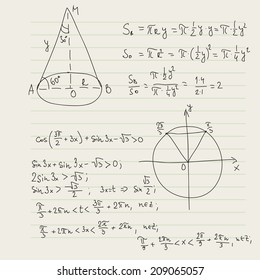 M
y
30°
60°
A
O
2
B
Sδ = π2y = π 1/2 y · y = π 1/2 y²
S₀ = π2² = π (1/2 y)² = π 1/4 y²
Sδ/S₀ = π 1/2 y² / π 1/4 y² = 1·4/2·1 = 2
cos(3π/2 + 3x) + sin3x - √3 > 0
sin3x + sin3x - √3 > 0;
2sin3x > √3;
sin3x > √3/2; 3x = t ⇒ sin √3/2;
π/3 + 2πn < t < 2π/3 + 2πn, n∈ℤ;
π/3 + 2πn < 3x < 2π/3 + 2πn, n∈ℤ;
π/9 + 2πn/3 < x < 2π/9 + 2πn/3, n∈ℤ,
y
π/3
O
x
shutterstock
209065057